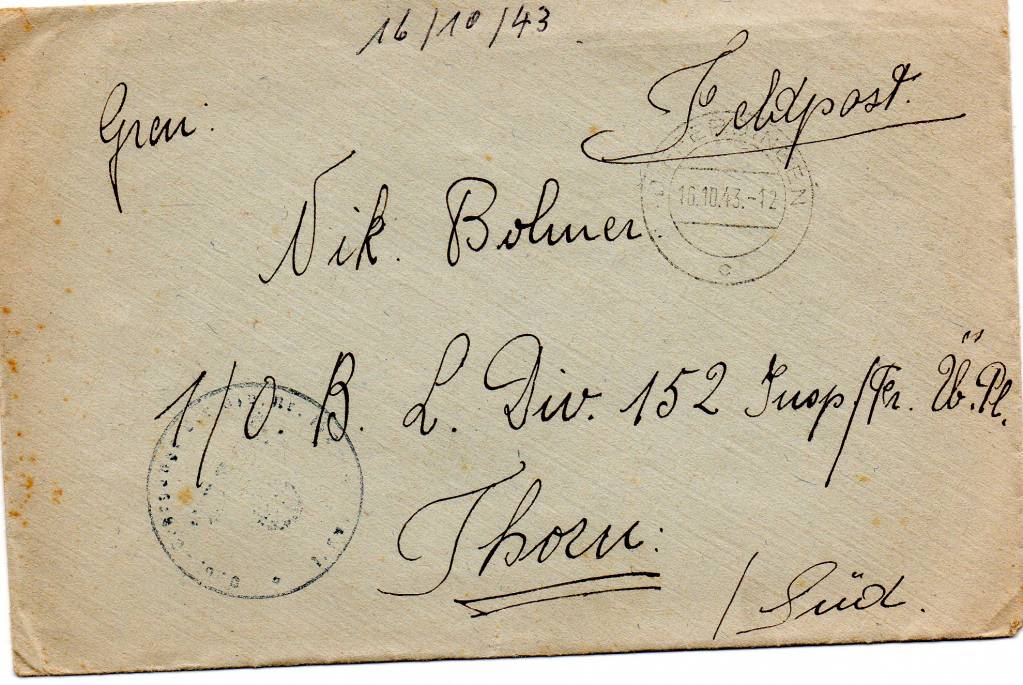 16/10/43
Feldpost.
Gren.
Nik. Bolmer.
16.10.43.-12
c
1/O. B. L. Div. 152 Insp/Fr. Üb. Pl.
Thorn.
/ Süd.